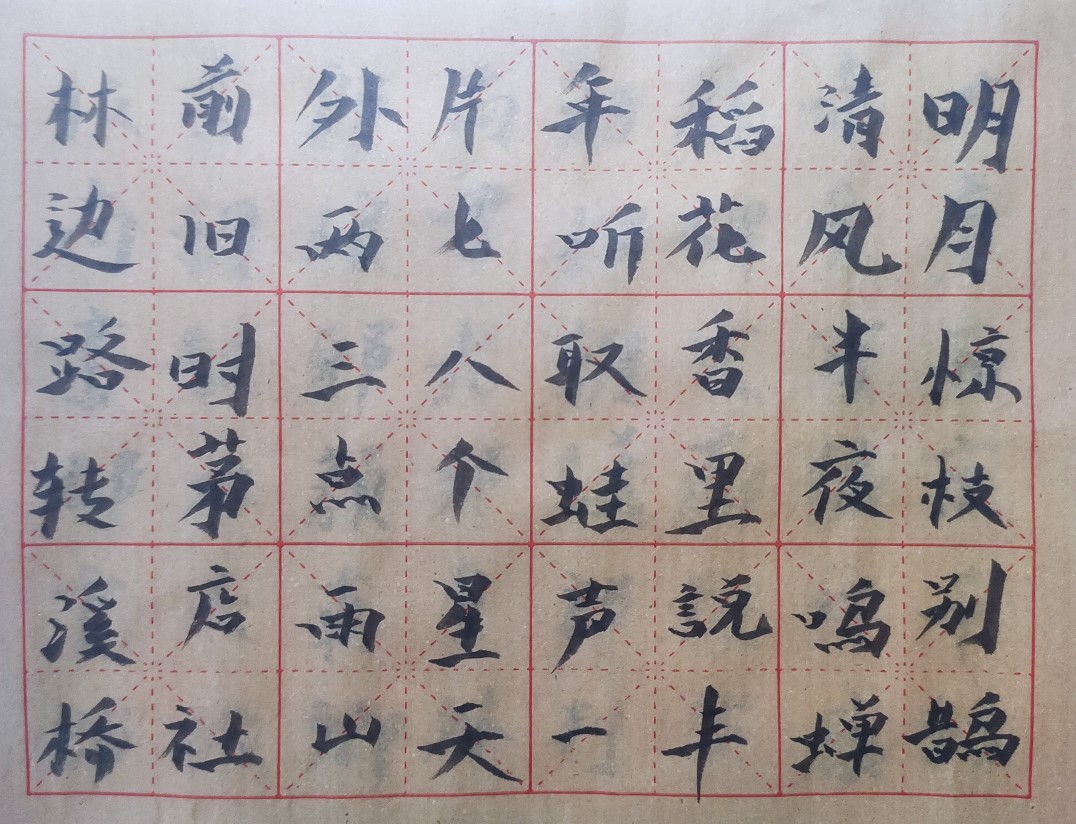 明月惊枝别鹊
清风半夜鸣蝉
稻花香里説丰
年听取蛙声一
片七八个星天
外两三点雨山
前旧时茅店社
林边路转溪桥